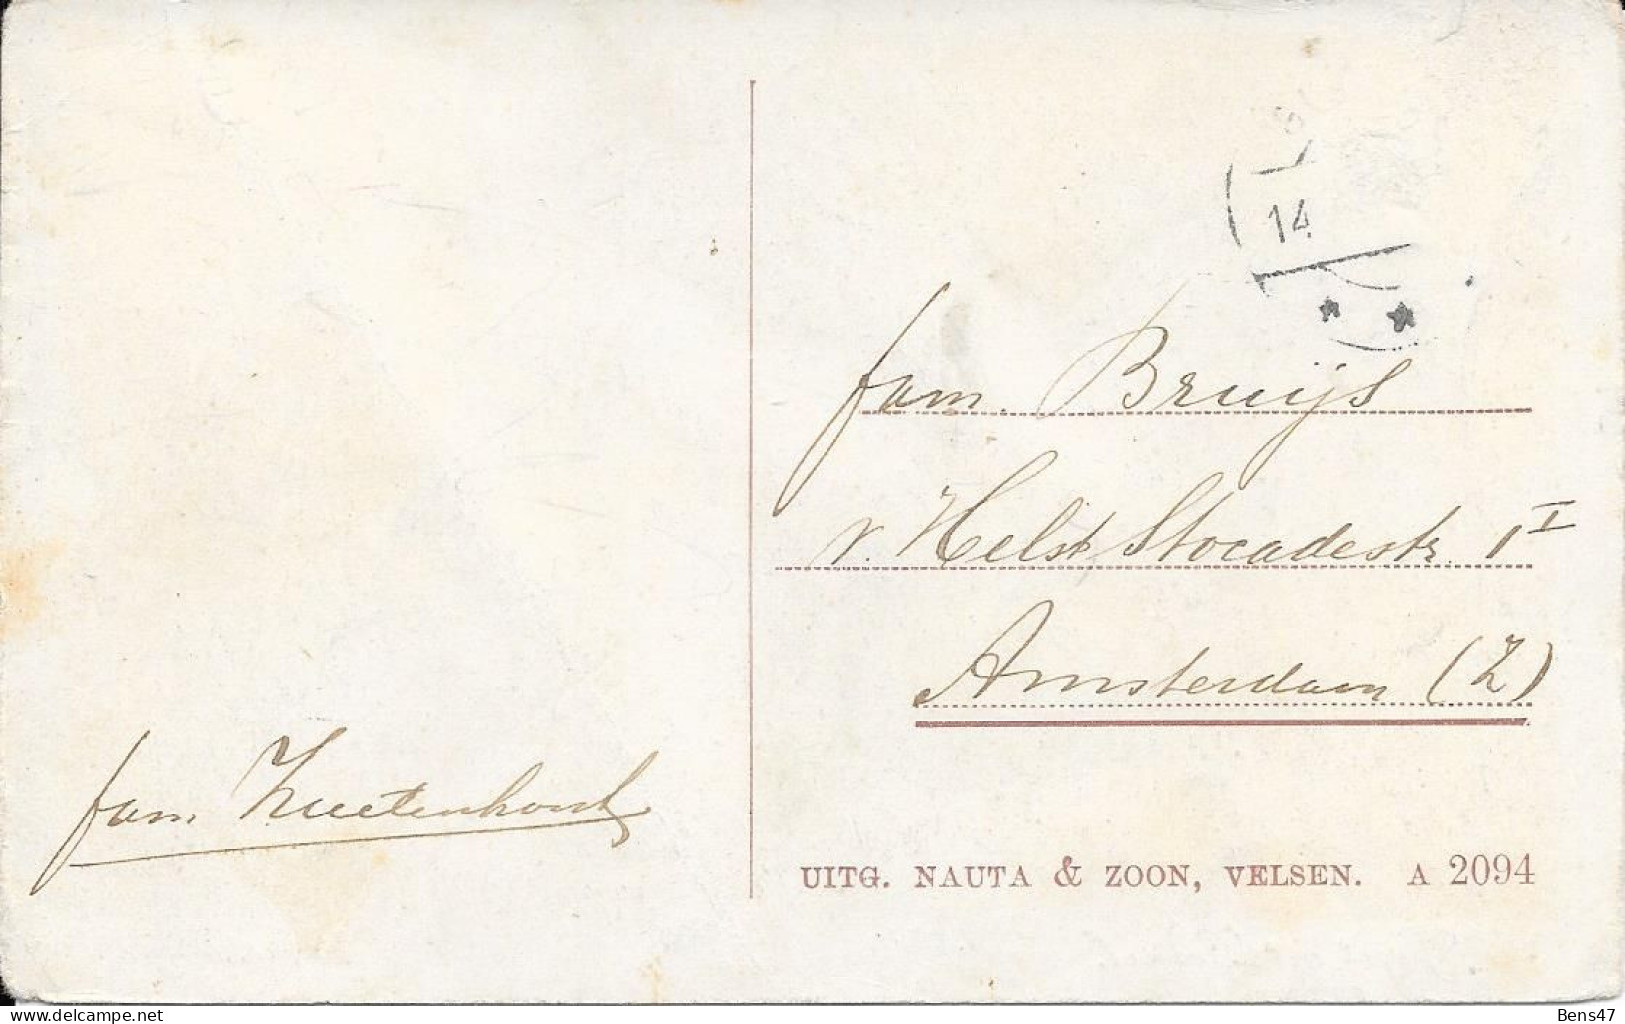 14
fam. Bruijs
v. Helst Stocadestr. 1 I
Amsterdam (Z)
fam.
UITG. NAUTA & ZOON, VELSEN. A 2094
delcampe.net
Bens47